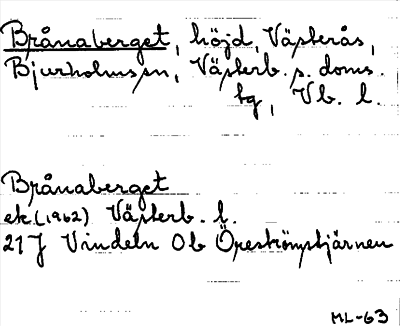 Brånaberget, höjd, Västerås,
Bjurholms sn, Västerb. s. doms.
tg, Vb. l.
Brånaberget
ek. (1962) Västerb. l.
21J Vindeln 0b Öreströmstjärnen
ML-63